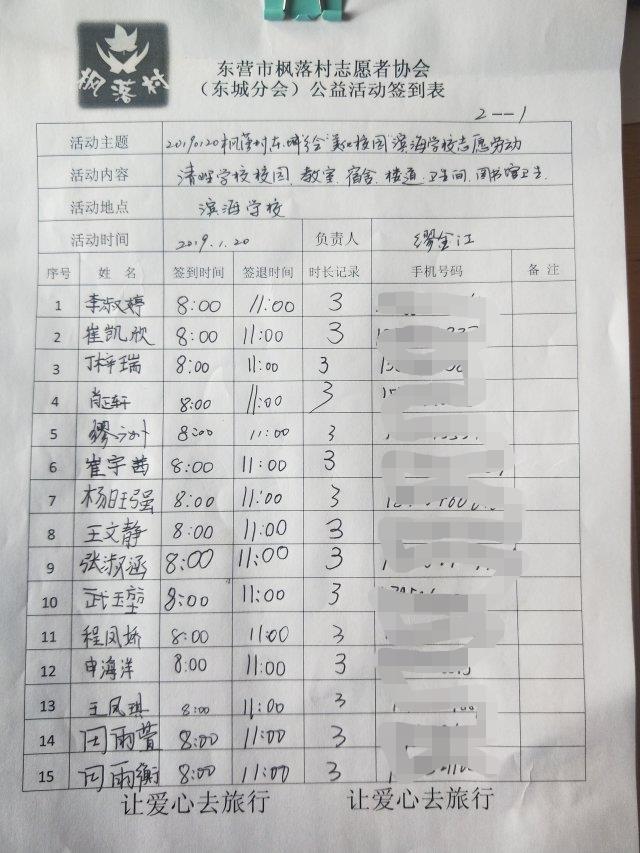 枫落村
东营市枫落村志愿者协会
（东城分会）公益活动签到表
2--1
活动主题 20190120枫落村东城分会"美化校园"滨海学校志愿劳动
活动内容 清理学校校园、教室、宿舍、楼道、卫生间、图书馆卫生.
活动地点 滨海学校
活动时间 2019.1.20 负责人 缪金江
序号 姓 名 签到时间 签退时间 时长记录 手机号码 备 注
1 李淑婷 8:00 11:00 3
2 崔凯欣 8:00 11:00 3
3 丁梓瑞 8:00 11:00 3
4 8:00 11:00 3
5 缪 8:00 11:00 3
6 崔宇茜 8:00 11:00 3
7 杨旺强 8:00 11:00 3
8 王文静 8:00 11:00 3
9 张淑涵 8:00 11:00 3
10 武玉堃 8:00 11:00 3
11 程凤娇 8:00 11:00 3
12 申海洋 8:00 11:00 3
13 王凤琪 8:00 11:00 3
14 雨萱 8:00 11:00 3
15 雨衡 8:00 11:00 3
让爱心去旅行 让爱心去旅行